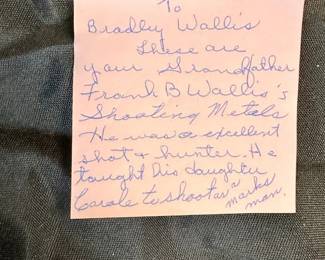 To
Bradley Wallis
These are
your Grandfather
Frank B Wallis's
Shooting Metals
He was a excellent
shot & hunter. He
taught his daughter
Carole to shoot as a marks
man.